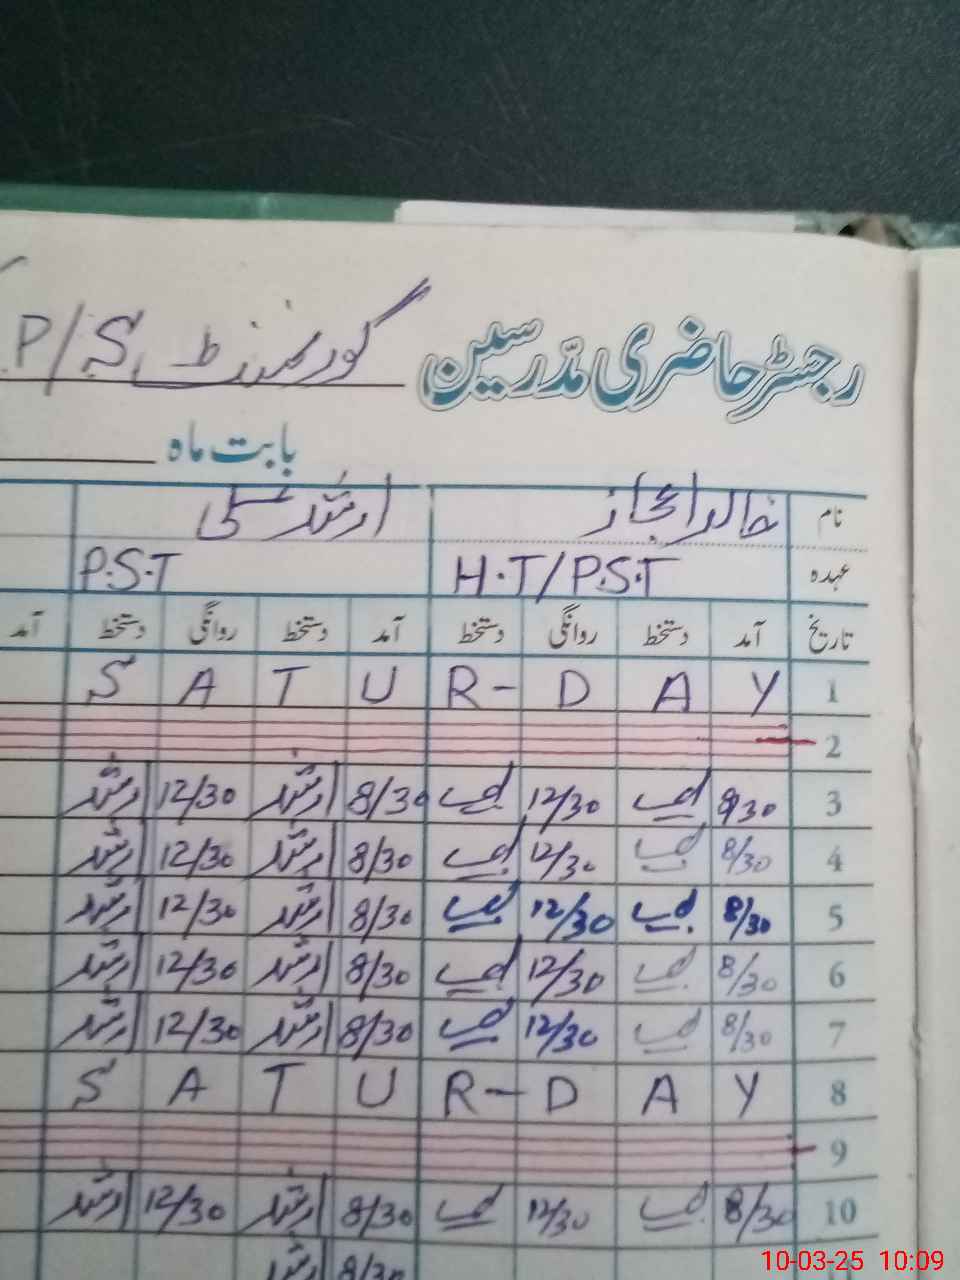 رجسٹر حاضری مدّرسین گورنمنٹ P/S
بابت ماہ
نام خالد اعجاز ارشد علی
عہدہ H.T/P.S.T P.S.T
تاریخ آمد دستخط روانگی دستخط آمد دستخط روانگی دستخط آمد
1 S A T U R - D A Y
2
3 8/30 12/30 8/30 ارشد 12/30 ارشد
4 8/30 12/30 8/30 ارشد 12/30 ارشد
5 8/30 12/30 8/30 ارشد 12/30 ارشد
6 8/30 12/30 8/30 ارشد 12/30 ارشد
7 8/30 12/30 8/30 ارشد 12/30 ارشد
8 S A T U R - D A Y
9
10 8/30 12/30 8/30 ارشد 12/30 ارشد
8/30 ارشد
10-03-25 10:09